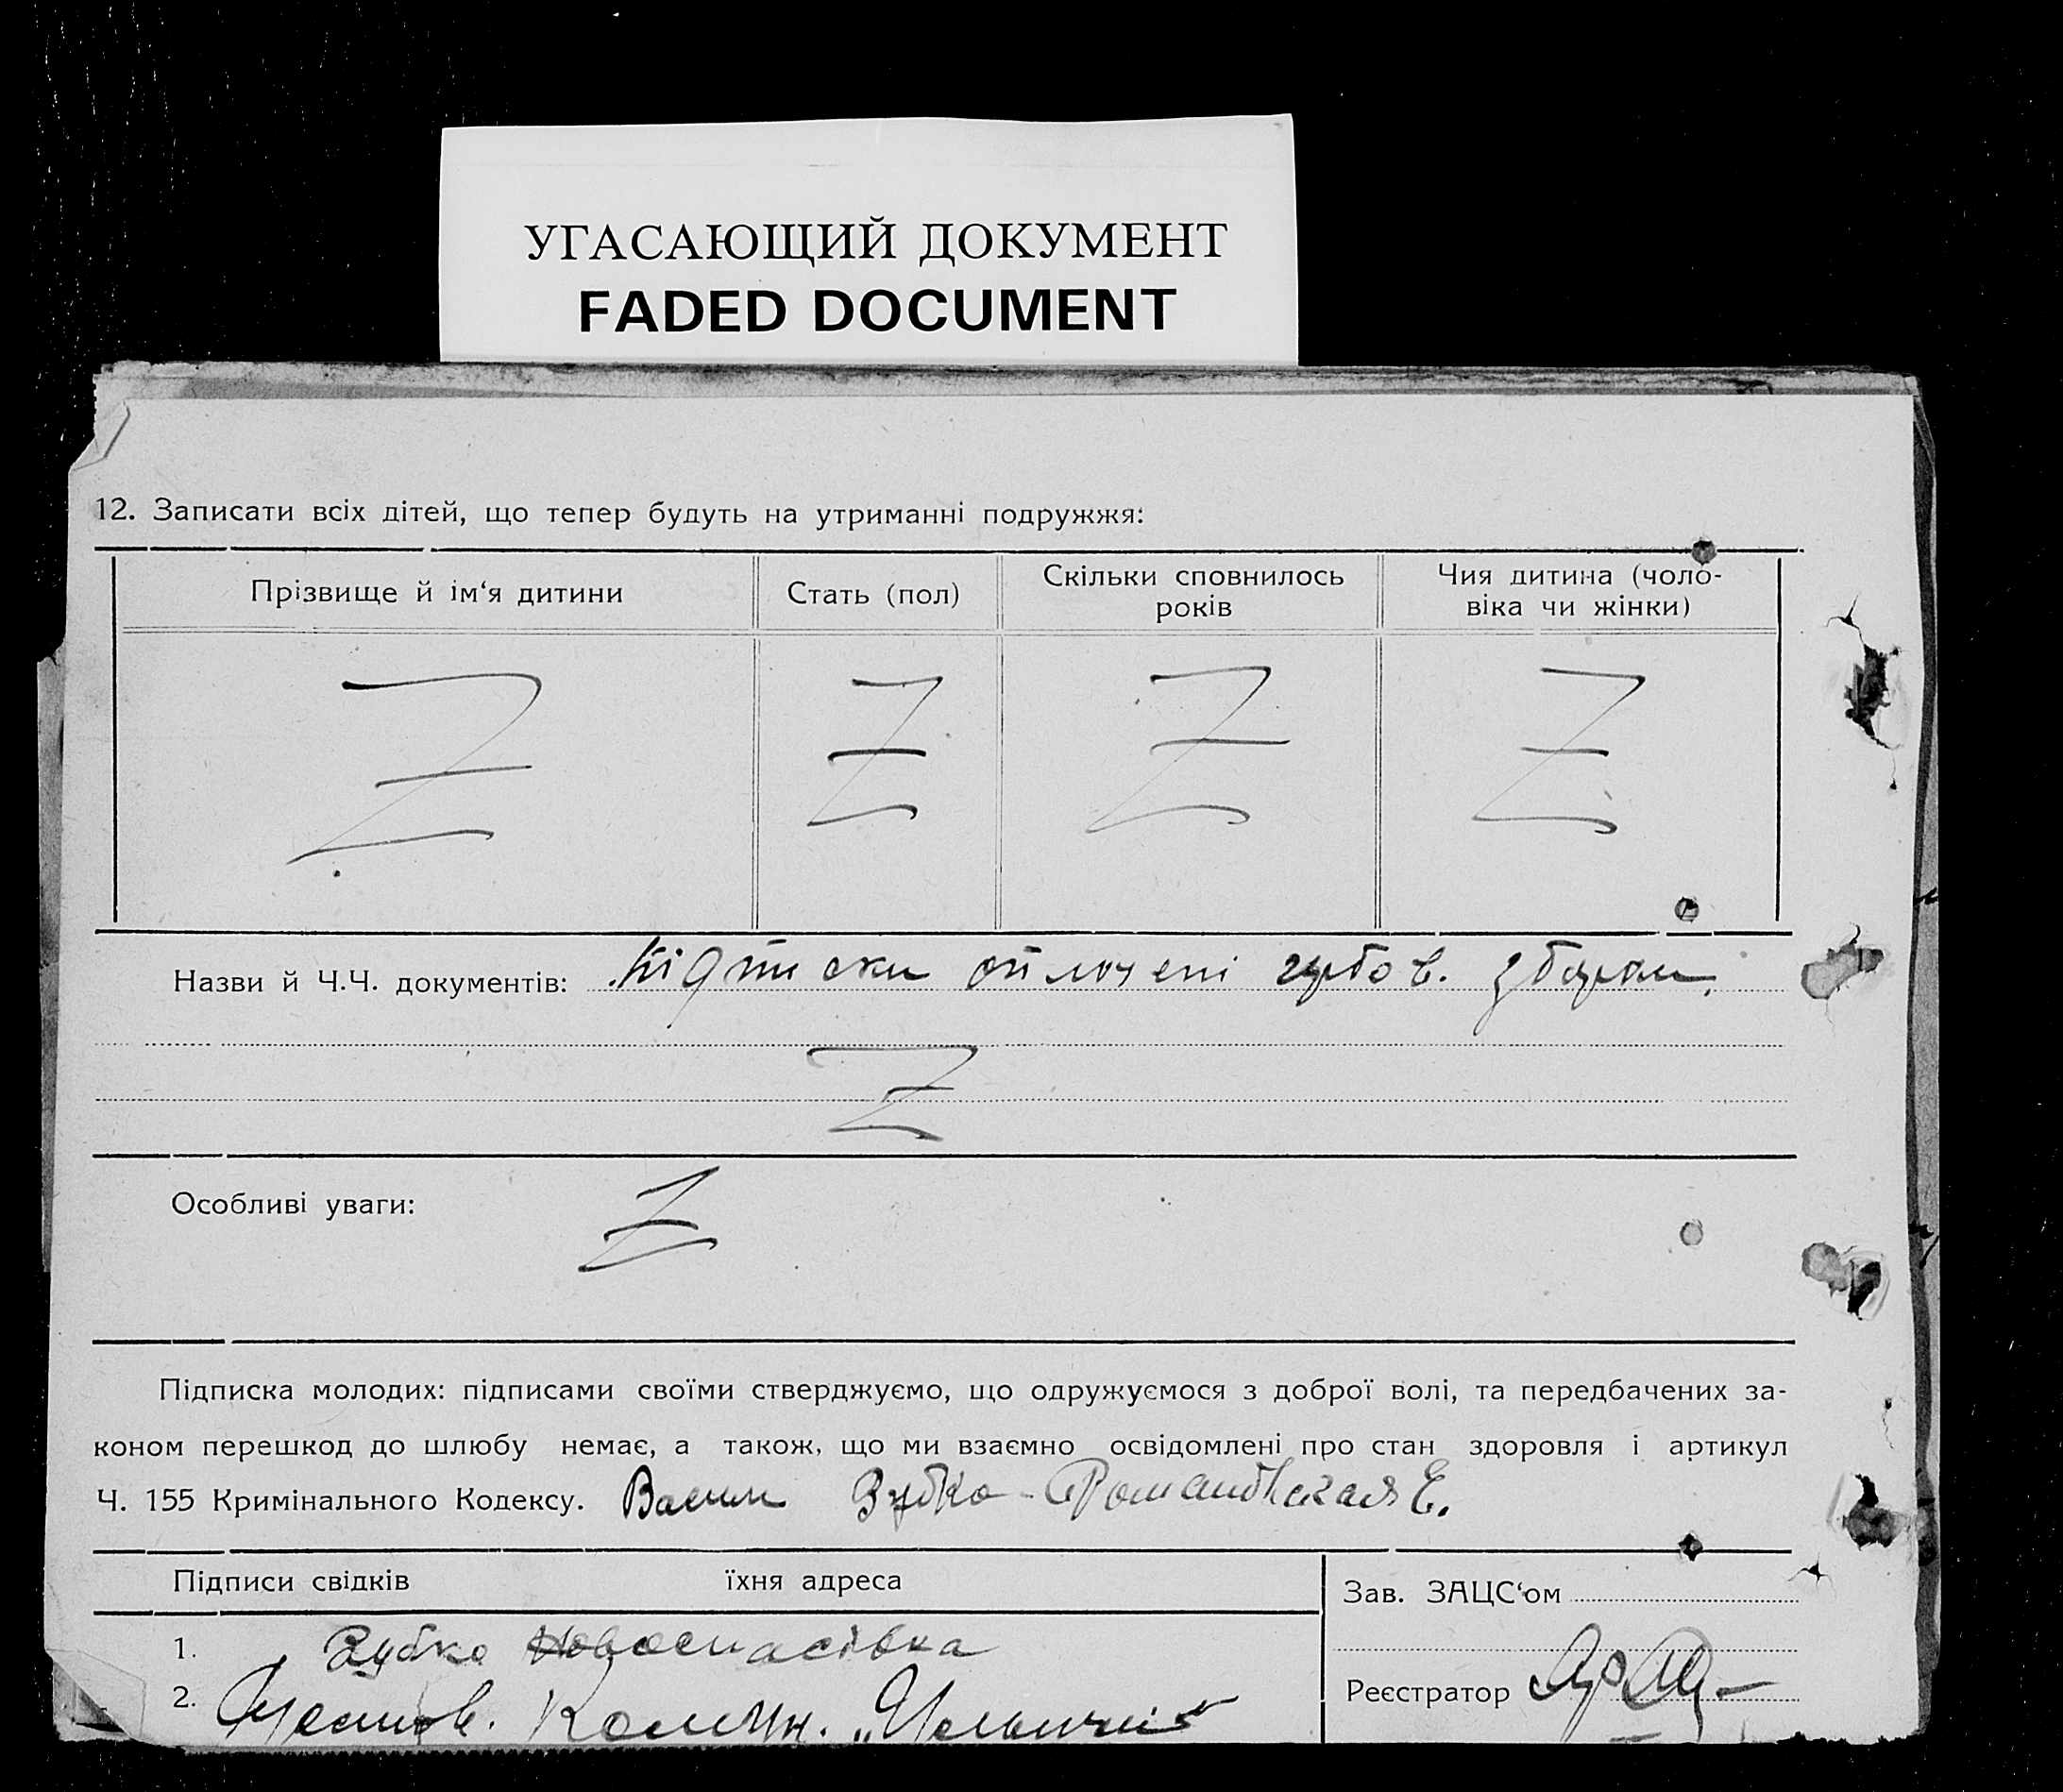 УГАСАЮЩИЙ ДОКУМЕНТ
FADED DOCUMENT
12. Записати всіх дітей, що тепер будуть на утриманні подружжя:
Прізвище й ім‘я дитини
Стать (пол)
Скільки сповнилось
років
Чия дитина (чоло-
віка чи жінки)
Z
Z
Z
Z
Назви й Ч.Ч. документів: Підписки оплочені гербов. збором.
Z
Особливі уваги:
Z
Підписка молодих: підписами своїми стверджуємо, що одружуємося з доброї волі, та передбачених за-
коном перешкод до шлюбу немає, а також, що ми взаємно освідомлені про стан здоровля і артикул
Ч. 155 Кримінального Кодексу. Зубко - Романовская Е.
Підписи свідків їхня адреса
1. Зубко Новоспасівка
2. Комун.
Зав. ЗАЦС‘ом
Реєстратор